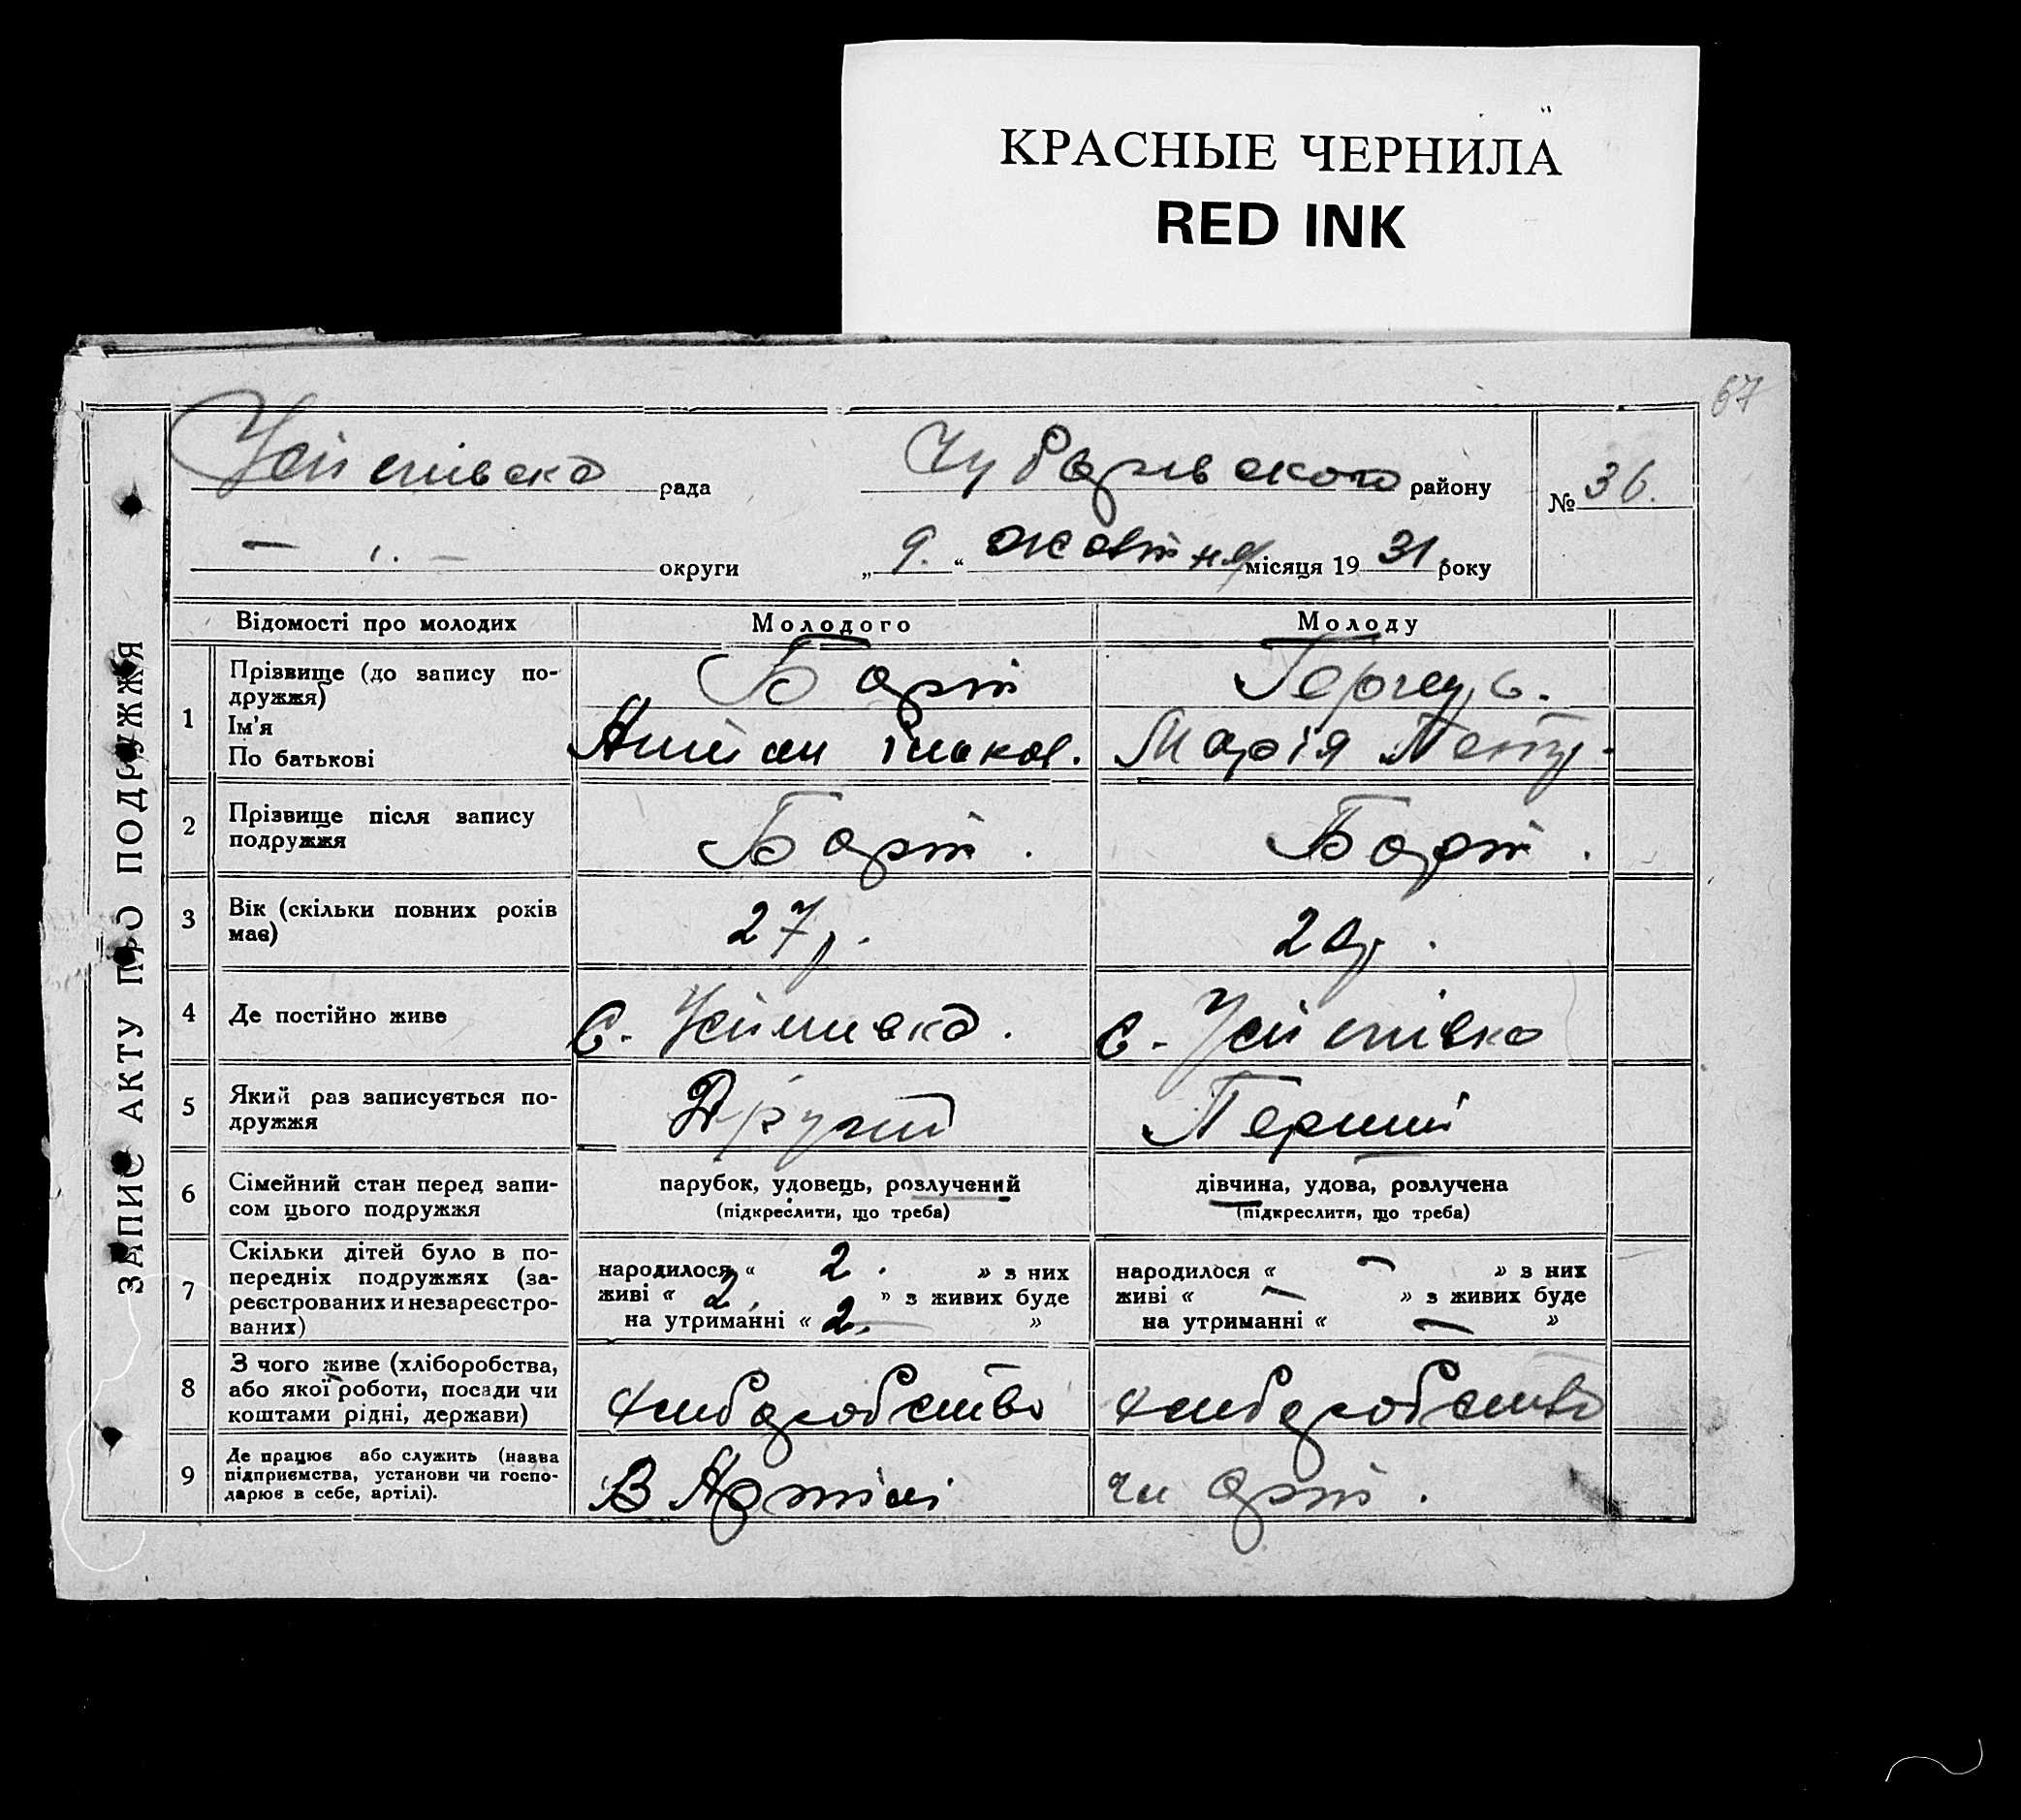 КРАСНЫЕ ЧЕРНИЛА
RED INK
67
ЗАПИС АКТУ ПРО ПОДРУЖЖЯ
рада Чубарівського району № 36.
— „ — округи „9.“ жовтня місяця 1931 року
Відомості про молодих Молодого Молоду
1 Прізвище (до запису по-
дружжя) Барт
Ім'я
По батькові Марія
2 Прізвище після запису
подружжя Барт . Барт .
3 Вік (скільки повних років
має) 27 р. 20 р.
4 Де постійно живе с. с.
5 Який раз записується по-
дружжя Другий Перший
6 Сімейний стан перед запи-
сом цього подружжя парубок, удовець, розлучений дівчина, удова, розлучена
(підкреслити, що треба) (підкреслити, що треба)
7 Скільки дітей було в по-
передніх подружжях (за-
реєстрованих и незареєстро-
ваних)
народилося « 2. » з них народилося « — » з них
живі « 2. » з живих буде живі « — » з живих буде
на утриманні « 2. » на утриманні « — »
8 З чого живе (хліборобства,
або якої роботи, посади чи
коштами рідні, держави) хлібаробство хлібаробство
9 Де працює або служить (назва
підприємства, установи чи госпо-
дарює в себе, артілі). В Артілі арт.